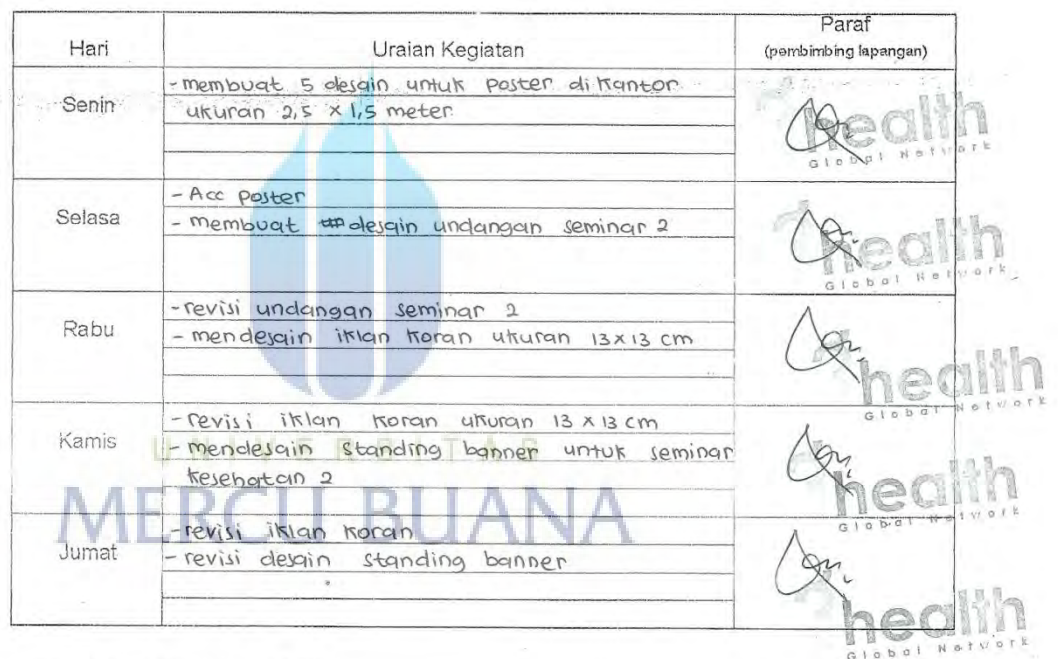 Hari Uraian Kegiatan Paraf
(pembimbing lapangan)
Senin
- membuat 5 desain untuk poster di kantor
ukuran 2,5 x 1,5 meter
health
Global Network
Selasa
- Acc poster
- membuat desain undangan seminar 2
health
Global Network
Rabu
- revisi undangan seminar 2
- mendesain iklan koran ukuran 13 x 13 cm
health
Global Network
Kamis
- revisi iklan koran ukuran 13 x 13 cm
- mendesain standing banner untuk seminar
kesehatan 2
health
Global Network
UNIVERSITAS
MERCU BUANA
Jumat
- revisi iklan koran
- revisi desain standing banner
health
Global Network